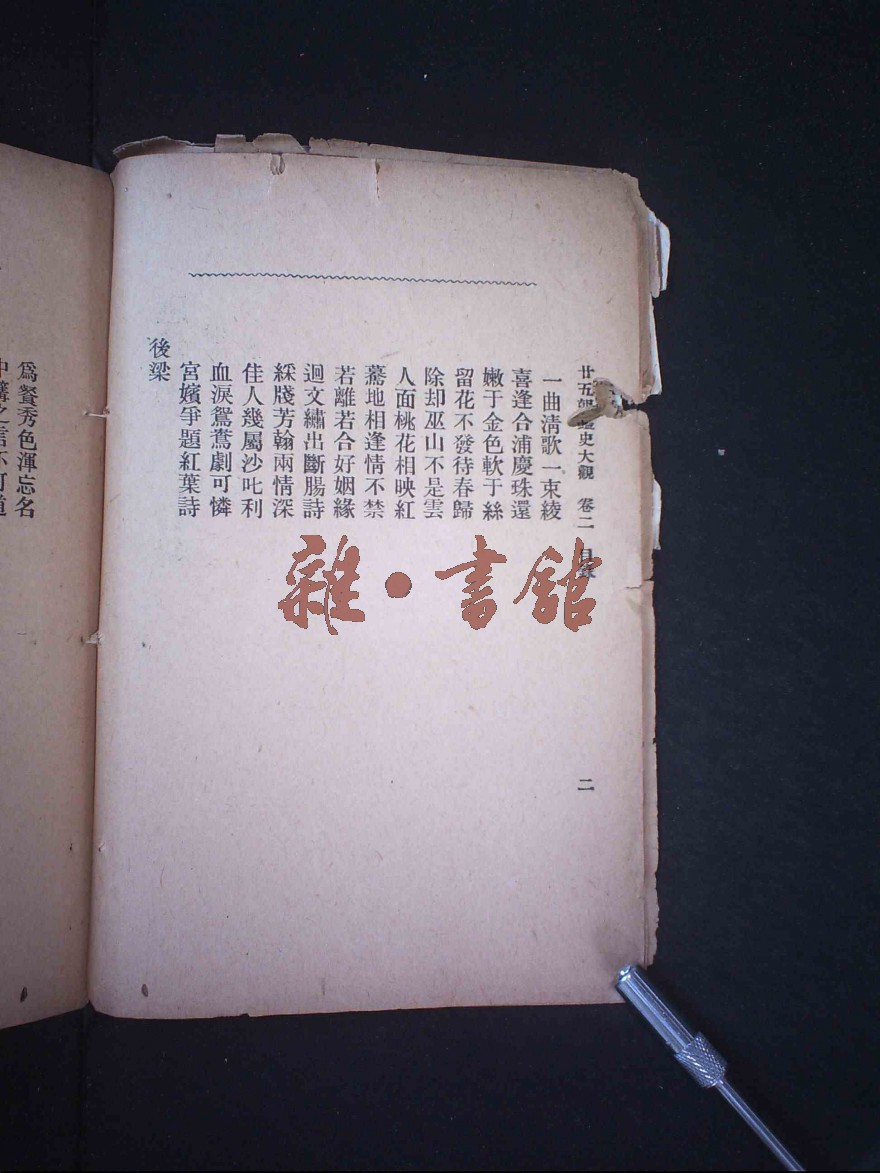 廿五部豔史大觀 卷二 目錄
二
一曲淸歌一束綾
喜逢合浦慶珠還
嫩于金色軟于絲
留花不發待春歸
除却巫山不是雲
人面桃花相映紅
驀地相逢情不禁
若離若合好姻緣
迴文繡出斷腸詩
綵牋芳翰兩情深
佳人幾屬沙叱利
血淚鴛鴦劇可憐
宮嬪爭題紅葉詩
後梁
爲餐秀色渾忘名
中冓之言不可道
雜•書館